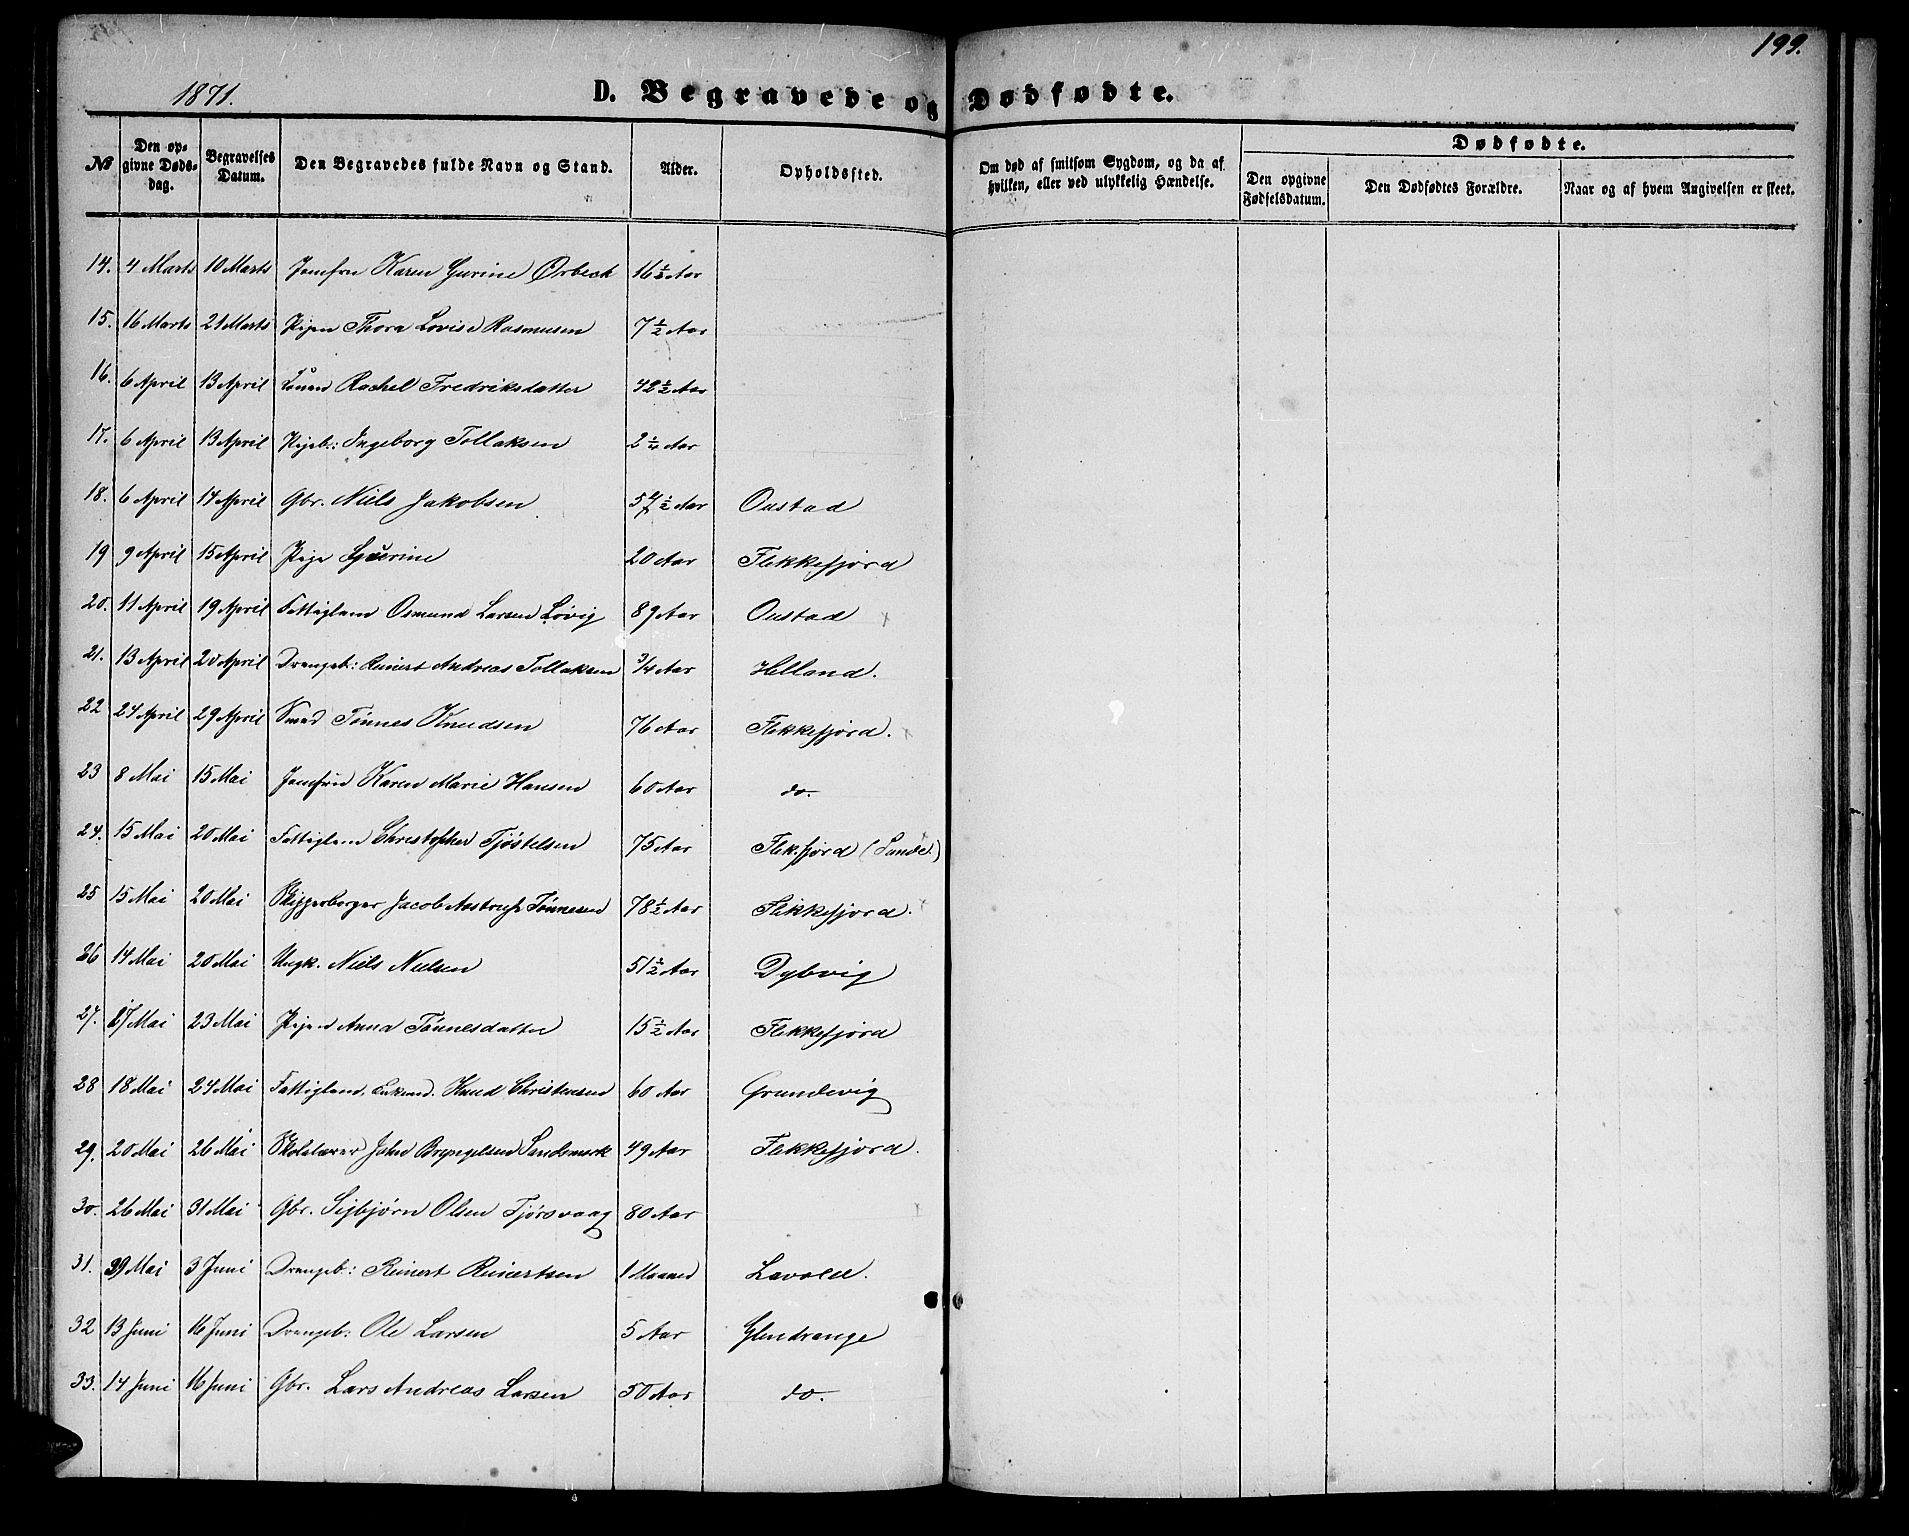 199.
1871.
D. Begravede og Dødfødte.
№ | Den op-givne Døds-dag. | Begravelses Datum. | Den Begravedes fulde Navn og Stand. | Alder. | Opholdssted. | Om død af smitsom Sygdom, og da af hvilken, eller ved ulykkelig Hændelse. | Dødfødte. | Den opgivne Fødselsdatum. | Den Dødfødtes Forældre. | Naar og af hvem Angivelsen er skeet.
14. 4 Marts 10 Marts Jomfru Karen Gurine Ørbeck 16 ½ Aar
15. 16 Marts 21 Marts Pigen Thora Lovise Rasmusen 7 ½ Aar
16. 6 April 13 April Rachel Fredriksdatter 42 ½ Aar
17. 6 April 13 April Pigeb: Ingeborg Tollaksen 2 ¼ Aar
18. 6 April 14 April Gbr. Niels Jakobsen 57 ½ Aar Oustad
19 9 April 15 April Pige 20 Aar Flekkefjord
20. 11 April 19 April Fattiglem Osmund Larsen Løvig 89 Aar Oustad
21. 13 April 20 April Drengeb: Reinert Andreas Tollaksen ¾ Aar Helland.
22 24 April 29 April Smed Tønnes Knudsen 76 Aar Flekkefjord.
23 8 Mai 15 Mai Jomfru Karen Marie Hansen 60 Aar do.
24. 15 Mai 20 Mai Fattiglem Christopher Tjøstelsen 75 Aar Flek.fjord (Sunde.)
25 15 Mai 20 Mai Skipperborger Jacob Aastrup Tønnesen 78 ½ Aar Flekkefjord.
26 14 Mai 20 Mai Ungk. Niels Nielsen 51 ½ Aar Dybvig
27. 17 Mai 23 Mai Pigen Anna Tønnesdatter 15 ½ Aar Flekkefjord
28 18 Mai 24 Mai Fattiglem, Enkemd. Knud Christensen 60 Aar Grundevig
29. 20 Mai 26 Mai Skolelærer John Bryngelsen Sandsmark 49 Aar Flekkefjord.
30. 26 Mai 31 Mai Gbr. Sigbjørn Olsen Tjørsvaag 80 Aar
31. 29 Mai 3 Juni Drengeb: Reinert Reinertsen 1 Maaned Lavold.
32 13 Juni 16 Juni Drengeb: Ole Larsen 5 Aar Glendrange
33. 14 Juni 16 Juni Gbr. Lars Andreas Larsen 50 Aar do.